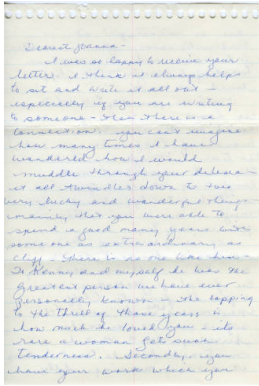 Dearest Joanna -
I was so happy to receive your
letter. I think it always helps
to sit and write it all out -
especially if you are writing
to someone - then there is a
connection. You can't imagine
how many times I have
wondered how I would
muddle through your dilemma -
it all dwindles down to two
very lucky and wonderful things -
mainly that you were able to
spend a good many years with
someone as extraordinary as
Cliff - there is no one like him -
To Kenny and myself he was the
greatest person we have ever
personally known - The topping
to the thrill of those years is
how much he loved you - its
rare a woman gets such
tenderness. Secondly, you
have your work which you